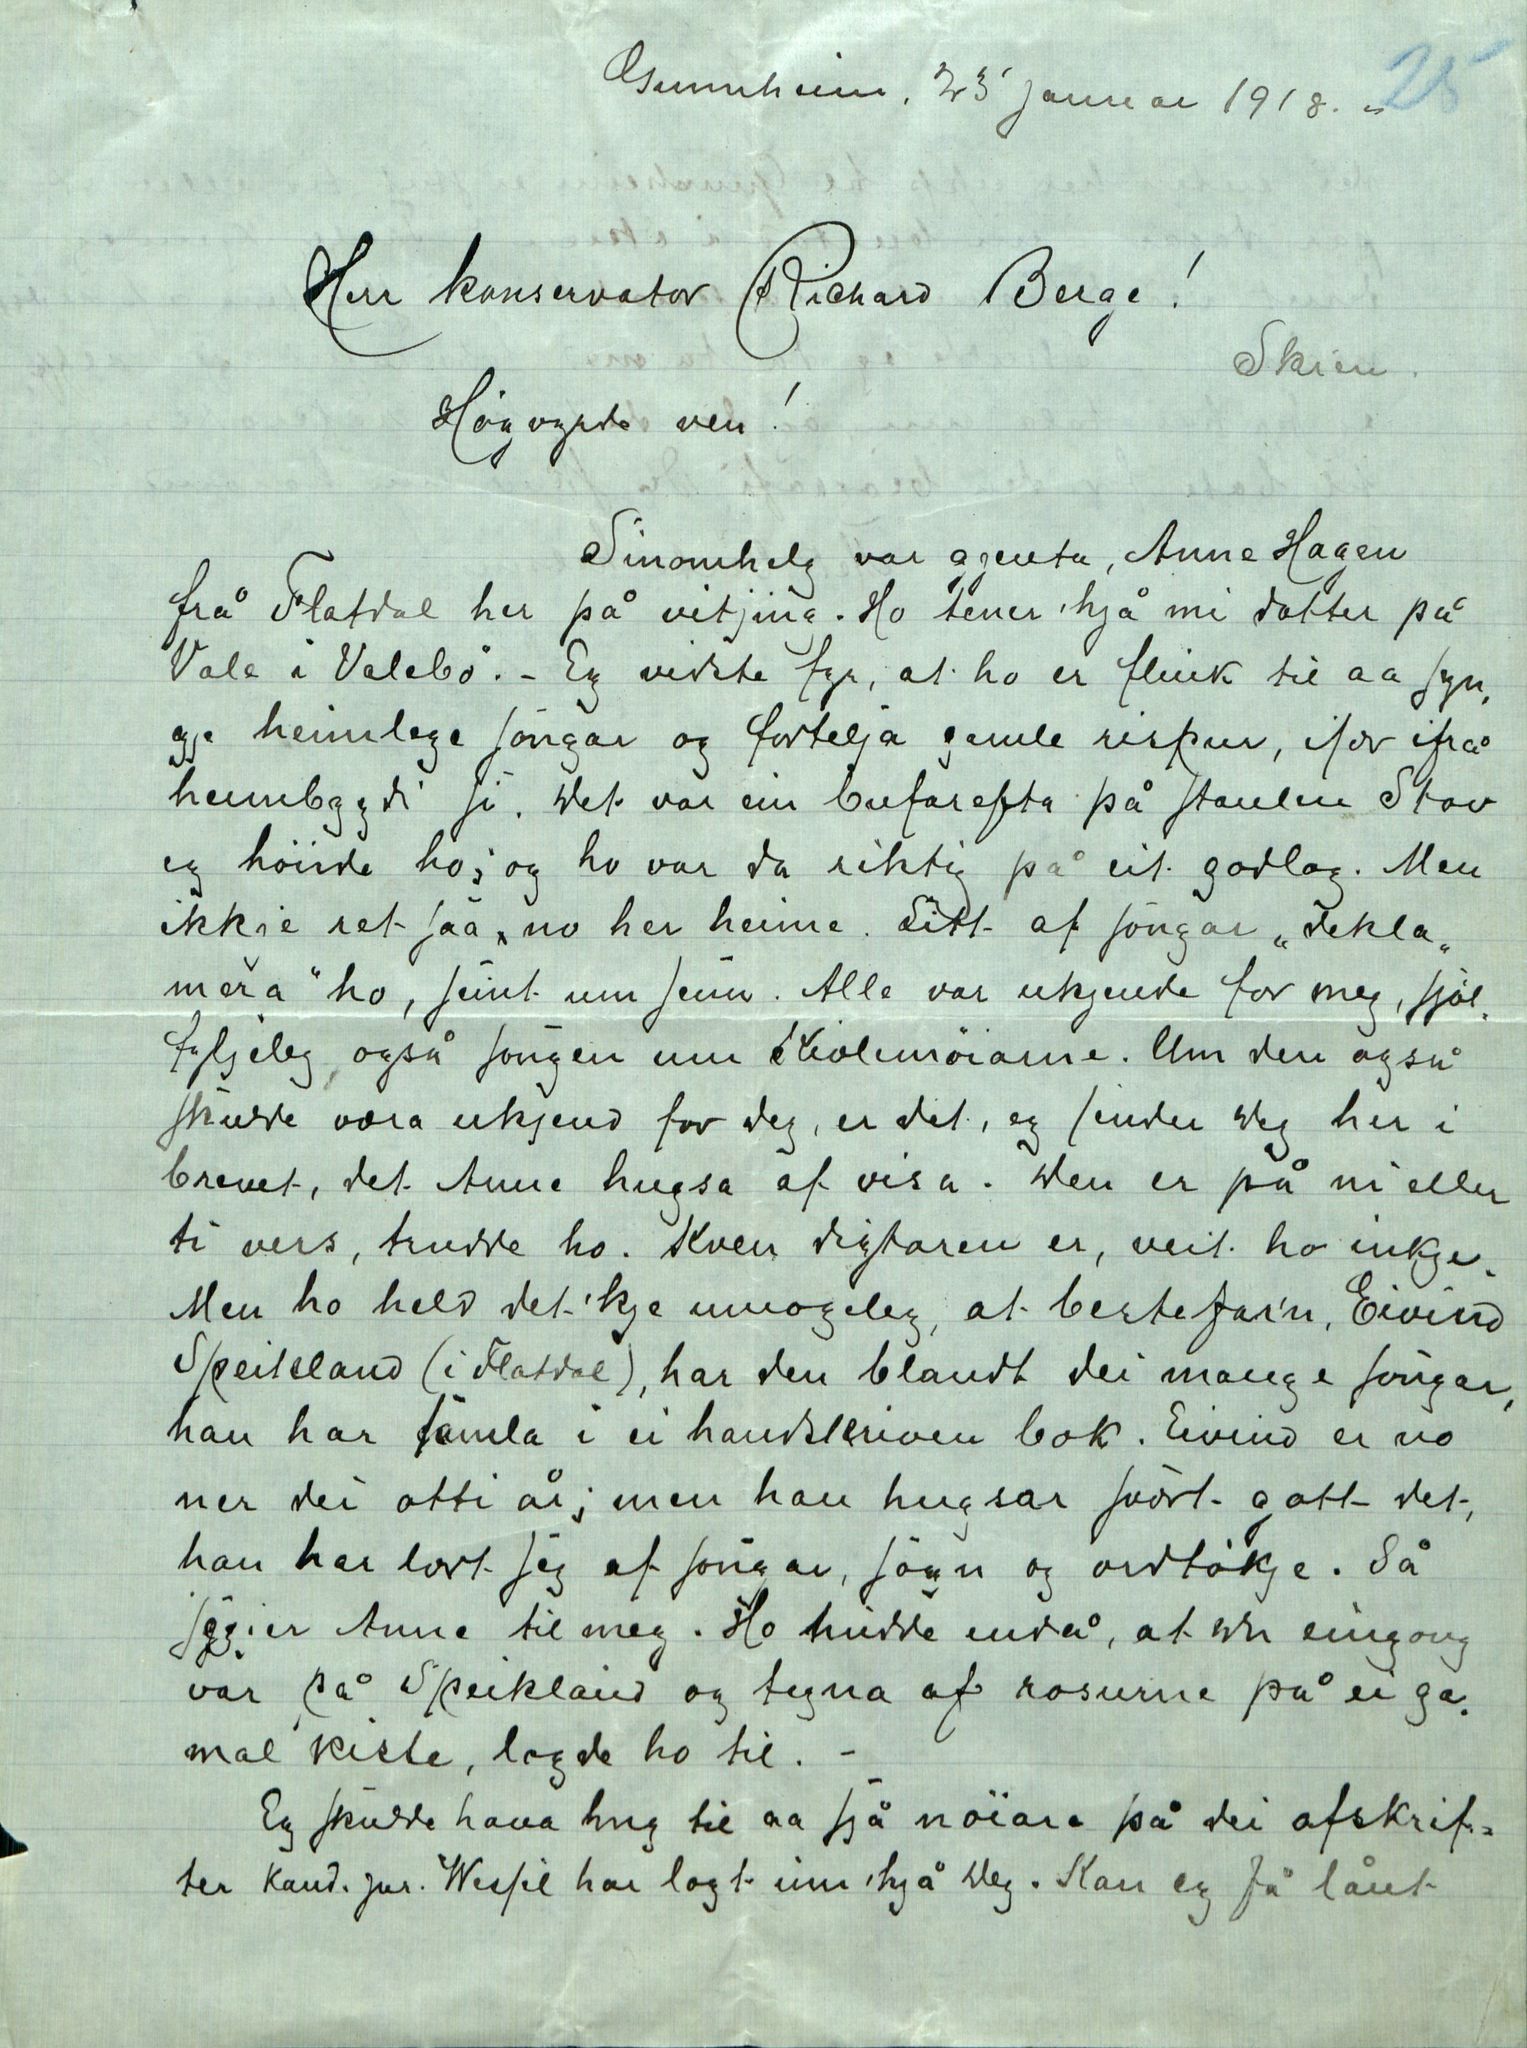 Gunnheim, 23 januar 1918. 25
Herr konservator Richard Berge!
Skien.
Høgvyrde ven!
Sinomhelg var gjenta, Anne Hagen
frå Flatdal her på vitjing. Ho tener 'hjå mi dotter på
Vale i Valebø. - Eg vidste fyr, at ho er flink til aa syn„
gje heimlege söngar og fortelja gamle rispur, især ifrå
heimbygdi si. Det var ein bufarefta på staulen Stav
eg höirde ho; og ho var da riktig på eit godlag. Men
ikkje ret såå, no her heime. Litt af söngar „dekla„
mera" ho, seint um senn. Alle var ukjende for meg, sjöl„
fyljeleg også söngen um Kivlemöiarne. Um den også
skulde væra ukjend for deg, er det, eg sender deg her i
brevet, det Anne hugsa af visa. Den er på ni eller
ti vers, trudde ho. Kven digtaren er, veit ho inkje.
Men ho held det 'kje umogeleg, at bestefar'n, Eivind
Speikland (i Flatdal), har den blandt dei mange söngar,
han har samla i ei handskriven bok. Eivind er no
ner dei otti år; men han hugsar svært gott det,
han har lært seg af söngar, sögn og ordtökje. Så
seggjer Anne til meg. Ho trudde endå, at du eingong
var på Speikland og tegna af rosurne på ei ga„
mal kiste, lagde ho til. -
Eg skulde hava hug til aa sjå nöiare på dei afskrif„
ter kand. jur. Wessel har lagt inn 'hjå deg. Kan eg få lånt